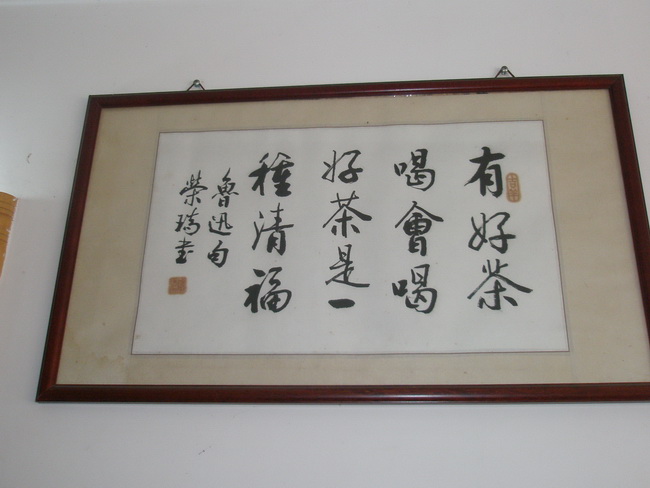 有好茶
喝會喝
好茶是一
種清福
魯迅句
榮瑞書